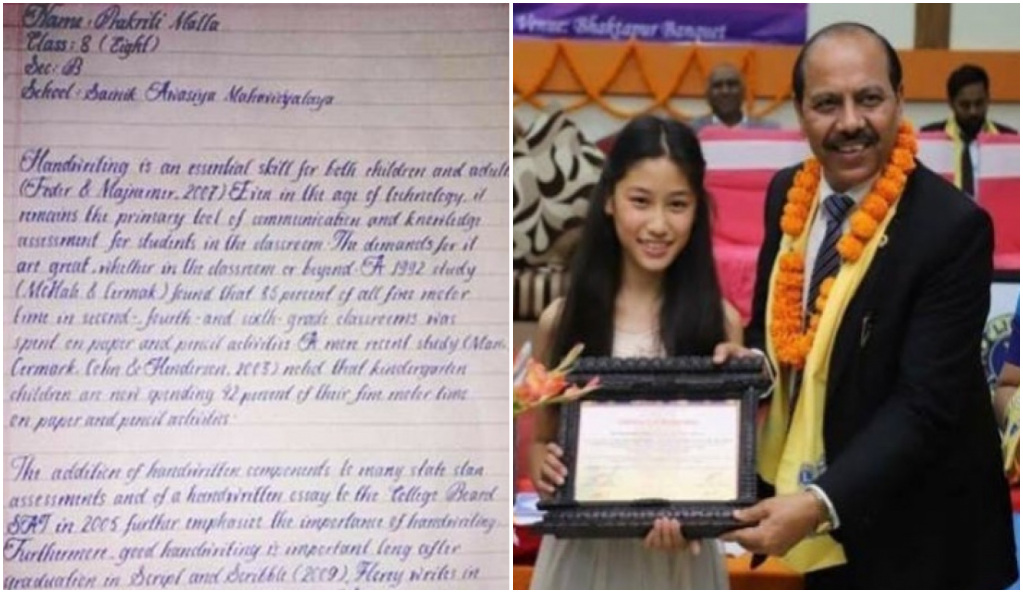 Name: Prakriti Malla
Class: 8 (Eight)
Sec: B
School: Sainik Awasiya Mahavidyalaya
Handwriting is an essential skill for both children and adult
(Feder & Majnemer, 2007) Even in the age of technology, it
remains the primary tool of communication and knowledge
assessment for students in the classroom. The demands for it
are great, whether in the classroom or beyond. A 1992 study
(McHale & Cermak) found that 85 percent of all fine motor
time in second-, fourth- and sixth-grade classrooms was
spent on paper and pencil activities. A more recent study (Marr,
Cermark, Cohn & Henderson, 2003) noted that kindergarten
children are now spending 42 percent of their fine motor time
on paper and pencil activities.
The addition of handwritten components to many state stan
assessments and of a handwritten essay to the College Board
SAT in 2005 further emphasize the importance of handwriting.
Furthermore, good handwriting is important long after
graduation in Script and Scribble (2009), Florey writes in
Venue: Bhaktapur Banquet